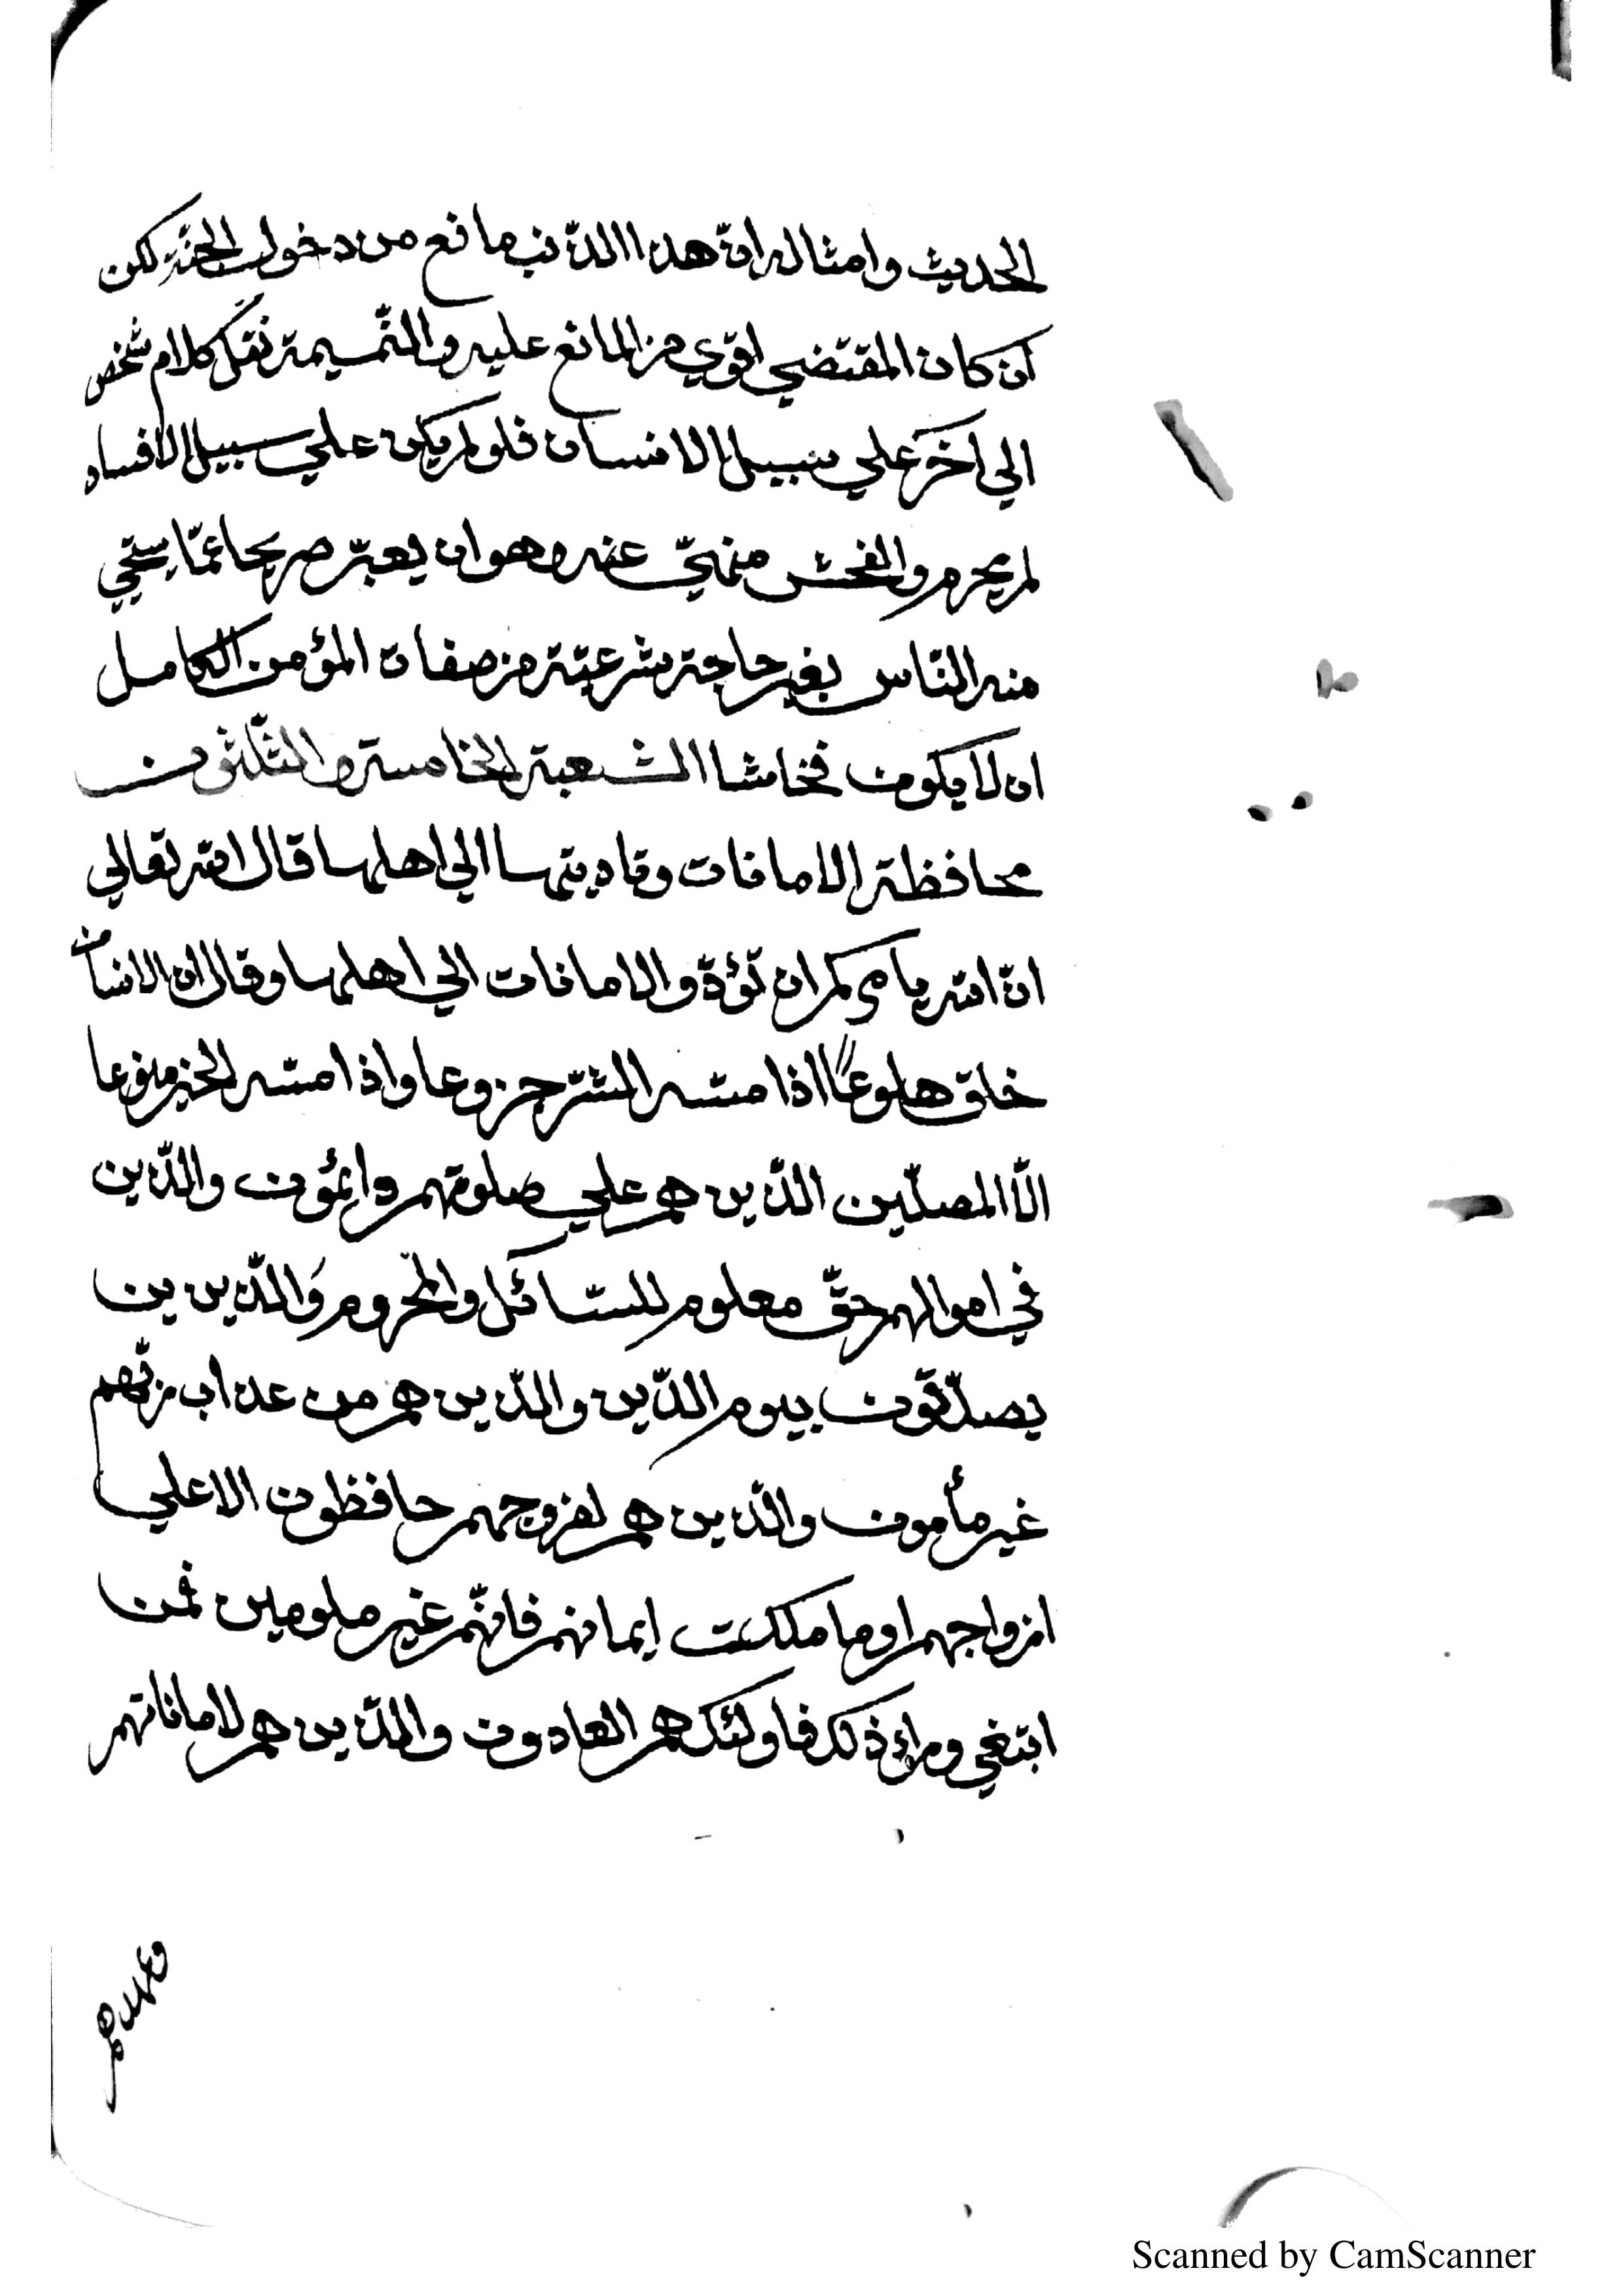 الحديث وامثاله انّ هذا الذّنب مانع من دخول الجنّة لكن
ان كان المقتضي اقوي من المانع عليه والنّميمة نقل كلام شخص
الي اخر علي سبيل الانسان فلو لم يكن علي سبيل الافساد
لم يحرم والفحش منهيّ عنه وهو ان يعبّر صريحا عمّا يستحيي
منه النّاس بغير حاجة شرعيّة من صفات المؤمن الكامل
ان لا يكون فحاشا الشعبة الخامسة والثّلثون
محافظة الامانات وتاديتها الي اهلها قال الله تعالي
انّ الله يامركم ان تؤدّوا الامانات الي اهلها وقال ان الانسان
خلق هلوعًا اذا مسّه الشّر جزوعا واذا مسّه الخير منوعا
الّا المصلّين الذّين هم علي صلوتهم دائمون والذّين
في اموالهم حقّ معلوم للسّائل والمحروم وَالذّين ين
يصدّقون بيوم الدّين والذّين هم من عذاب ربّهم
غير مأمون والذين هم لفروجهم حافظون الا علي
ازواجهم او ما ملكت ايمانهم فانّهم غير ملومين فمن
ابتغي وراء ذلك فاولئك هم العادون والذّين هم لاماناتهم
وعهدهم
Scanned by CamScanner